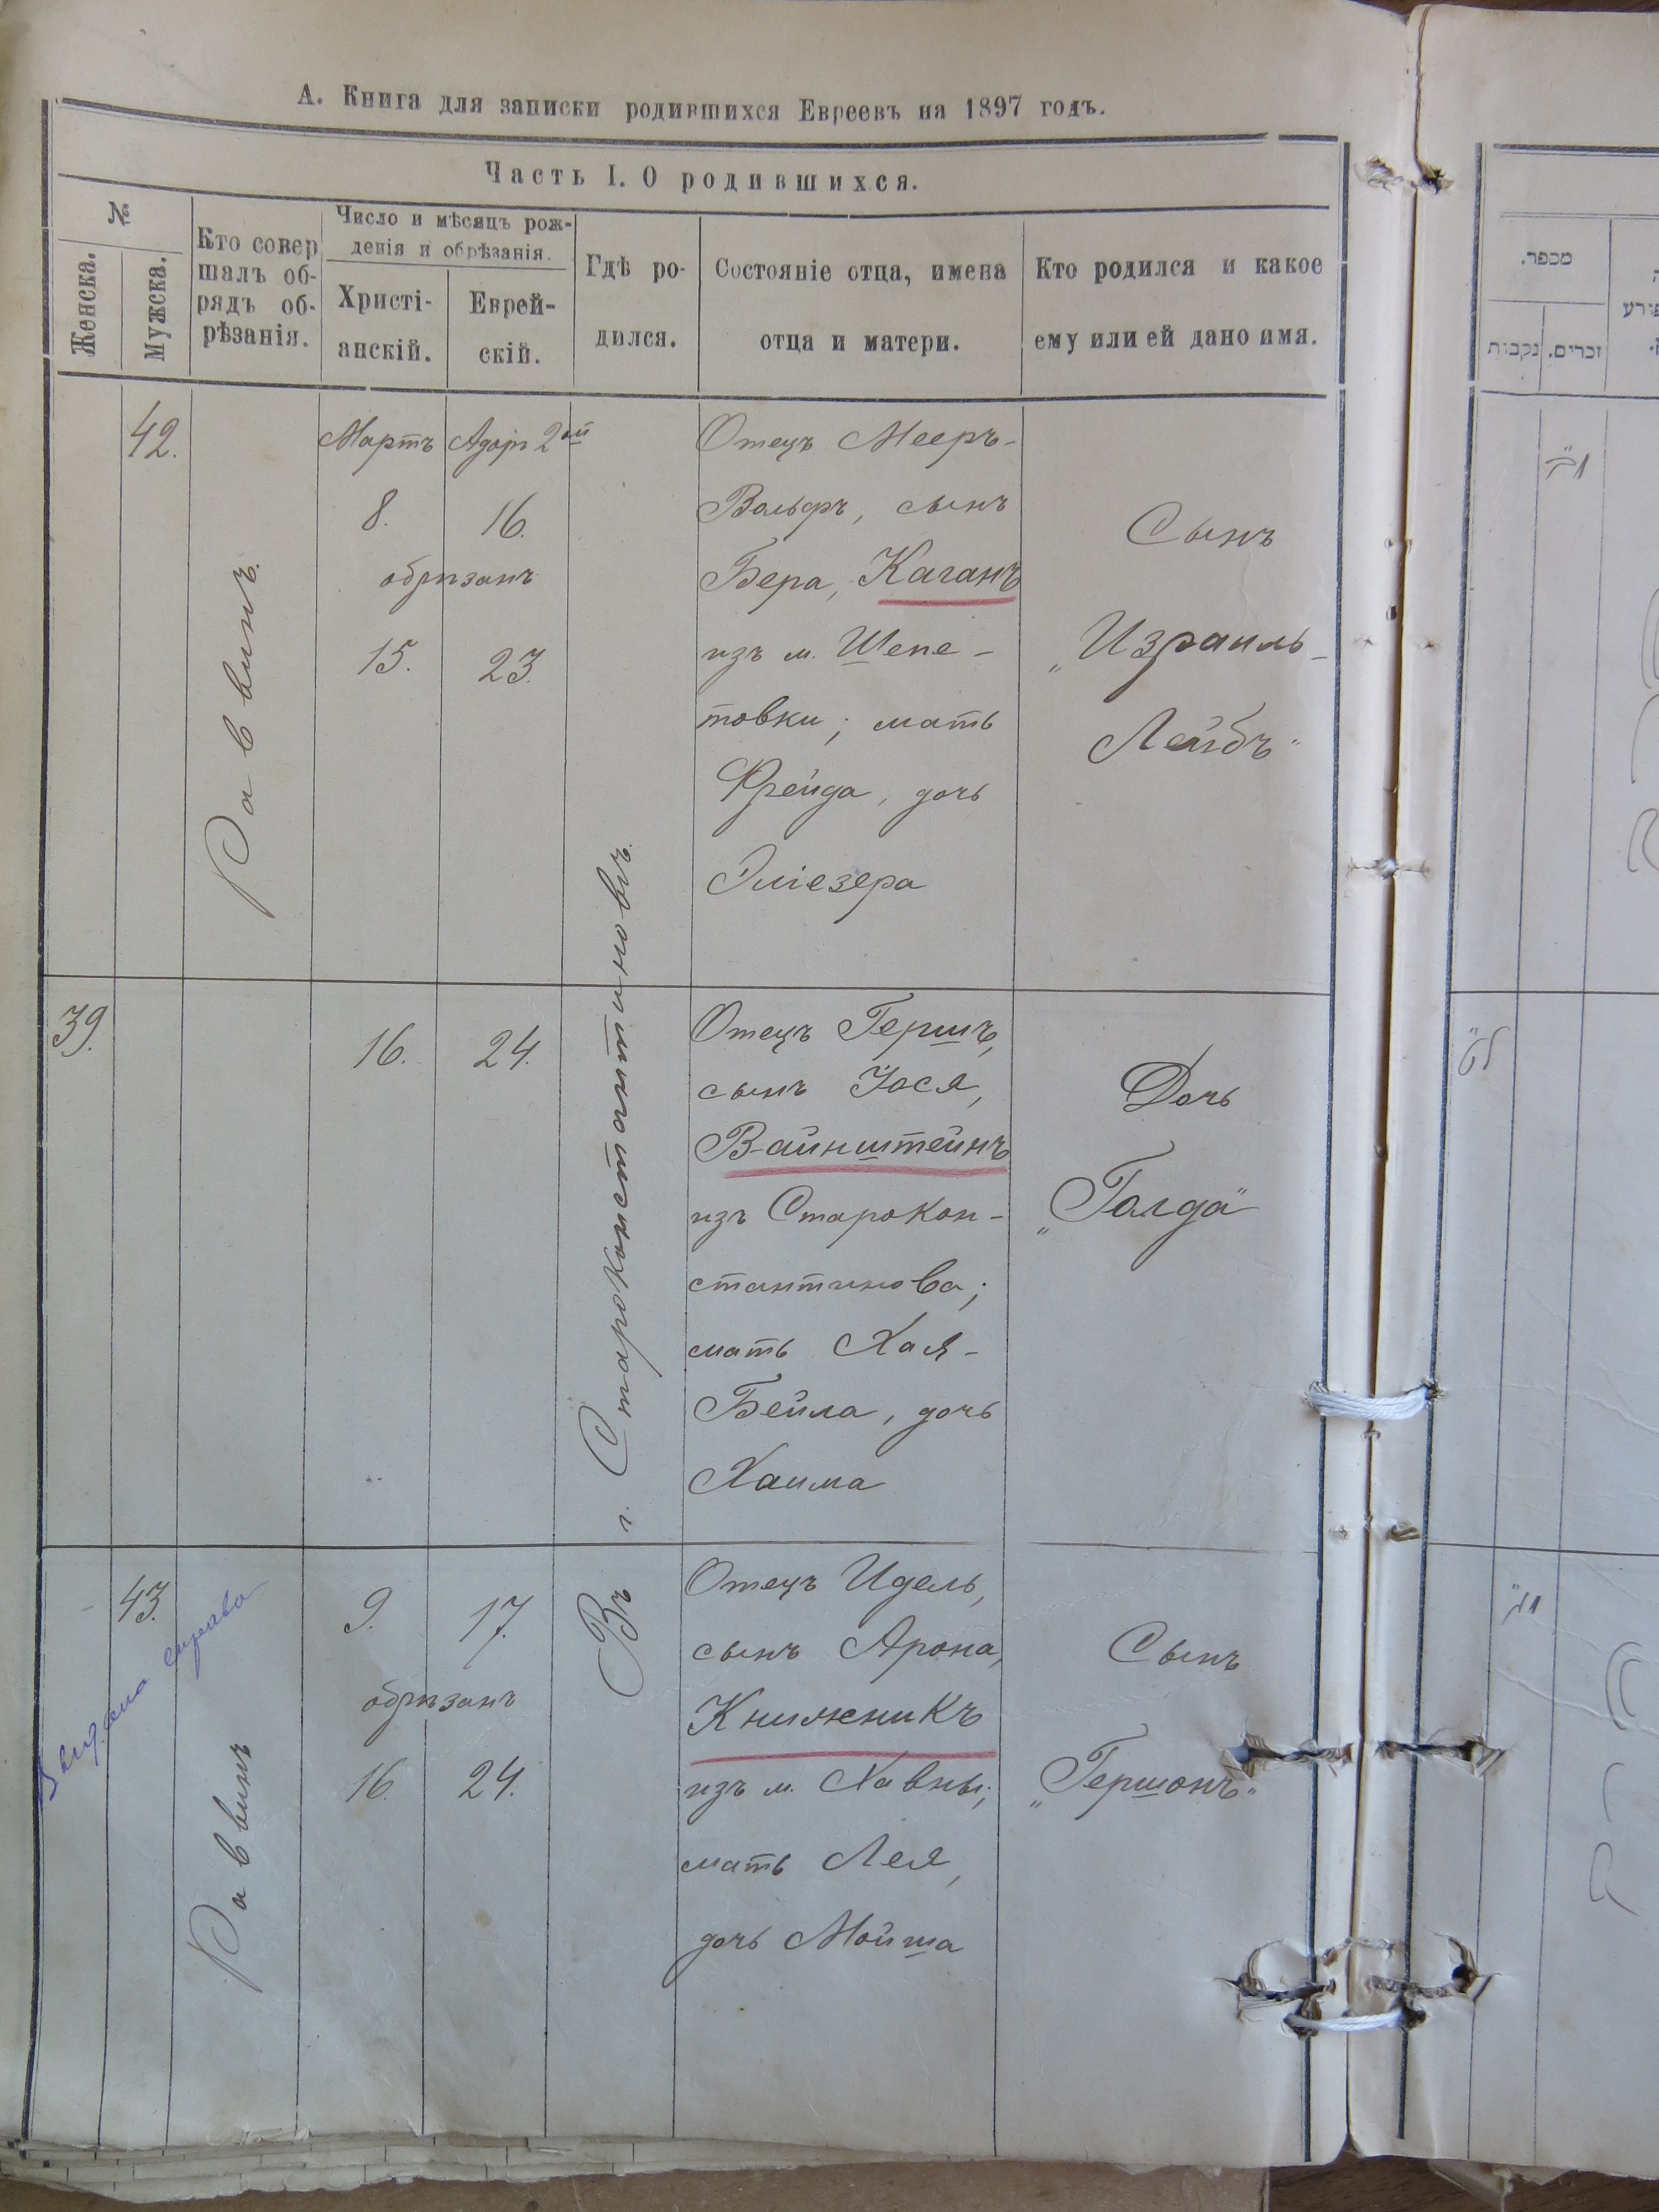 А. Книга для записки родившихся Евреевъ на 1897 годъ.
Часть I. О родившихся.
№
Женска.
Мужска.
Кто совер
шалъ об-
рядъ об-
рѣзанія.
Число и мѣсяцъ рож-
денія и обрѣзанія.
Христі-
анскій.
Еврей-
скій.
Гдѣ ро-
дился.
Состояніе отца, имена
отца и матери.
Кто родился и какое
ему или ей дано имя.
42.
Раввинъ.
Мартъ
8.
Адоръ 2ой
16.
обрѣзанъ
15.
23.
Въ г. Староконстантиновѣ.
Отецъ Мееръ-
Вольфъ, сынъ
Бера, Каганъ
изъ м. Шепе-
товки; мать
Фрейда, дочь
Эліезера
Сынъ
„Израиль-
Лейбъ"
39.
16.
24.
Отецъ Гершъ,
сынъ Іося,
Вайнштейнъ
изъ Старокон-
стантинова;
мать Хая-
Бейла, дочь
Хаима
Дочь
„Голда"
43.
Раввинъ
9.
17.
обрѣзанъ
16.
24.
Отецъ Идель,
сынъ Арона,
Книжникъ
изъ м. Хавны;
мать Лея,
дочь Мойша
Сынъ
„Гершонъ"
מספר.
זכרים.
נקבות